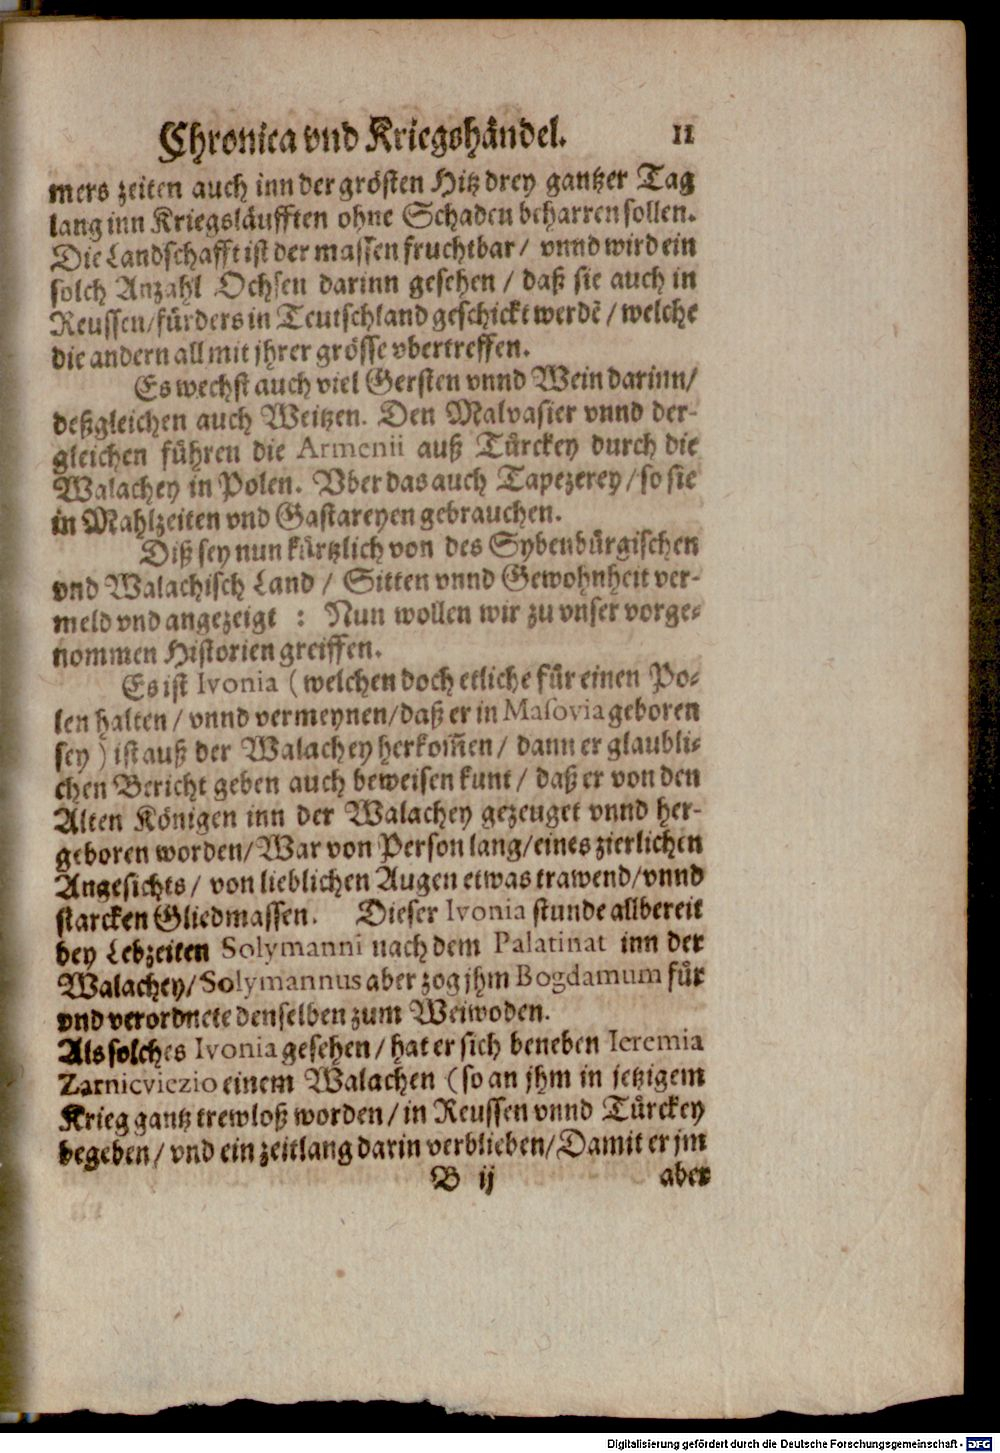 Chronica vnd Kriegshändel. 11
mers zeiten auch inn der grösten Hitz drey gantzer Tag
lang inn Kriegsläufften ohne Schaden beharren sollen.
Die Landschafft ist der massen fruchtbar / vnnd wird ein
solch Anzahl Ochsen darinn gesehen / daß sie auch in
Reussen / fürders in Teutschland geschickt werdẽ / welche
die andern all mit jhrer grösse vbertreffen.
Es wechst auch viel Gersten vnnd Wein darinn /
deßgleichen auch Weitzen. Den Malvasier vnnd der-
gleichen führen die Armenii auß Türckey durch die
Walachey in Polen. Vber das auch Tapezerey / so sie
in Mahlzeiten vnd Gastareyen gebrauchen.
Diß sey nun kürtzlich von des Sybenbürgischen
vnd Walachisch Land / Sitten vnnd Gewohnheit ver-
meld vnd angezeigt : Nun wollen wir zu vnser vorge-
nommen Historien greiffen.
Es ist Ivonia ( welchen doch etliche für einen Po-
len halten / vnnd vermeynen / daß er in Masovia geboren
sey ) ist auß der Walachey herkom̃en / dann er glaubli-
chen Bericht geben auch beweisen kunt / daß er von den
Alten Königen inn der Walachey gezeuget vnnd her-
geboren worden / War von Person lang / eines zierlichen
Angesichts / von lieblichen Augen etwas trawend / vnnd
starcken Gliedmassen. Dieser Ivonia stunde allbereit
bey Lebzeiten Solymanni nach dem Palatinat inn der
Walachey / Solymannus aber zog jhm Bogdamum für
vnd verordnete denselben zum Weiwoden.
Als solches Ivonia gesehen / hat er sich beneben Ieremia
Zarnieviezio einem Walachen ( so an jhm in jetzigem
Krieg gantz trewloß worden / in Reussen vnnd Türckey
begeben / vnd ein zeitlang darin verblieben / Damit er jm
B ij aber
Digitalisierung gefördert durch die Deutsche Forschungsgemeinschaft - DFG